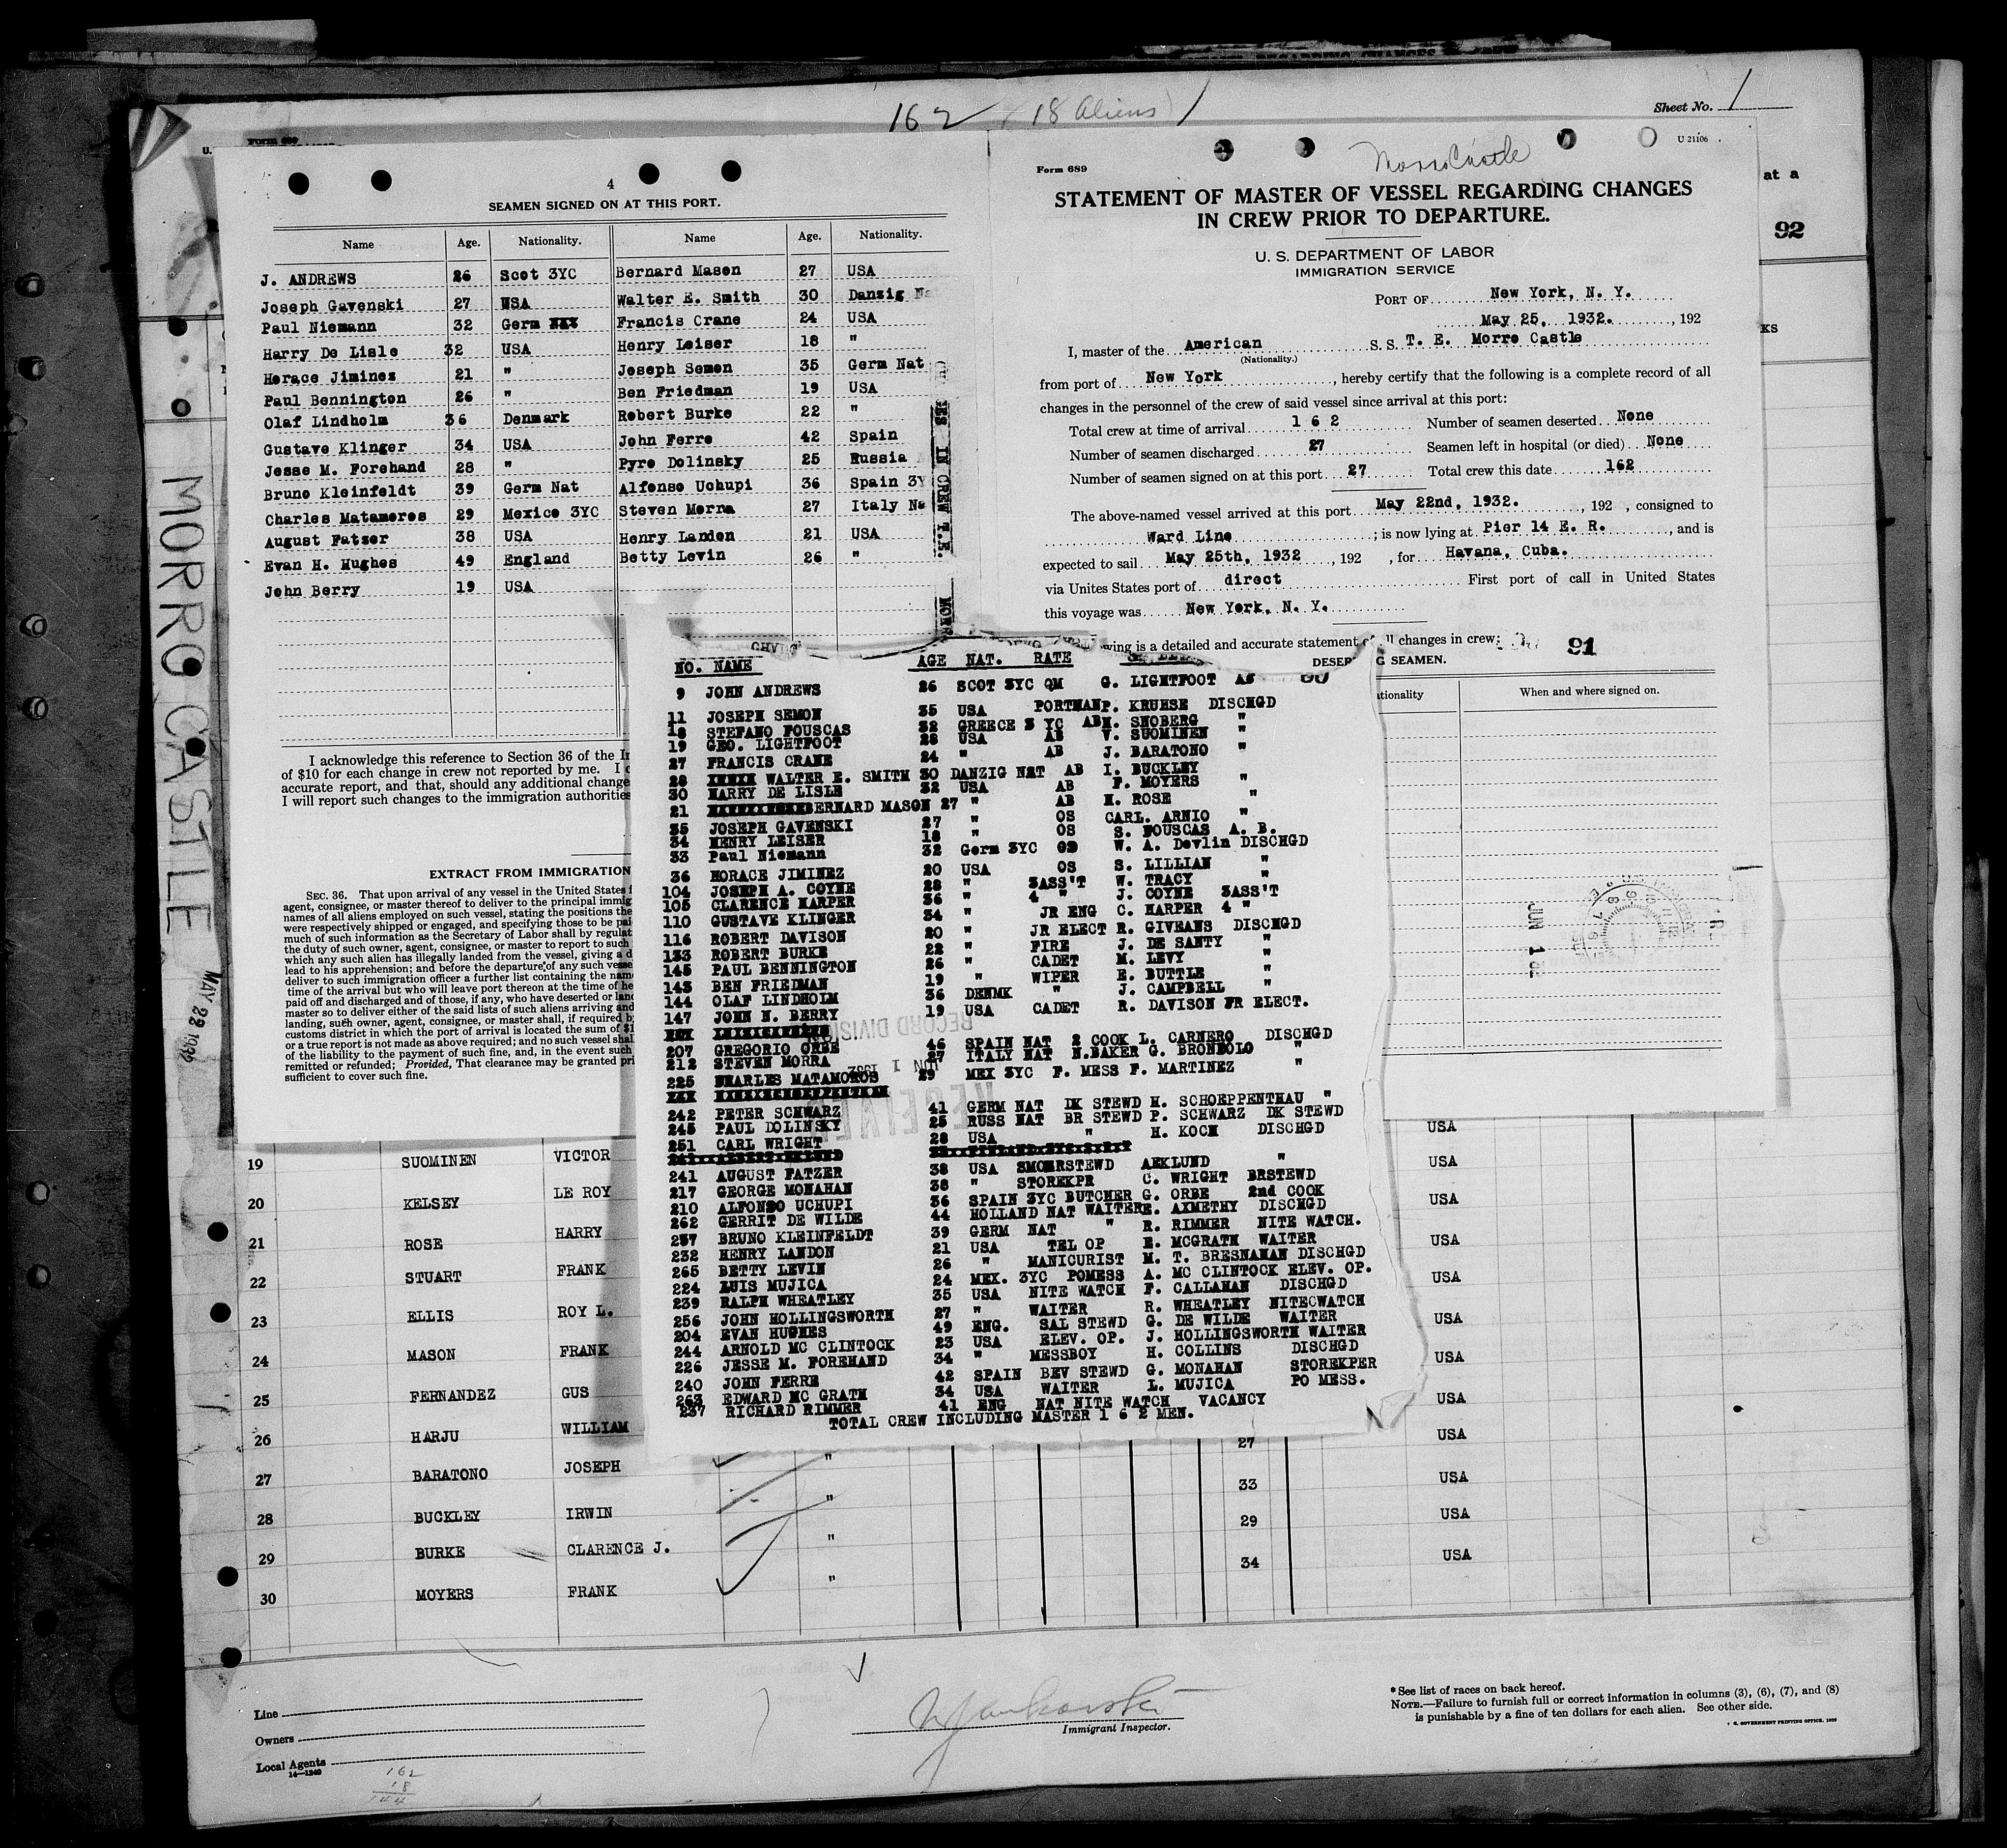 162 (18 Aliens) 1
Sheet No. 1
Form 689
4
SEAMEN SIGNED ON AT THIS PORT.
Name Age. Nationality. Name Age. Nationality.
J. ANDREWS 26 Scot 3YC Bernard Mason 27 USA
Joseph Gavenski 27 USA Walter E. Smith 30 Danzig
Paul Niemann 32 Germ Francis Crane 24 USA
Harry De Lisle 32 USA Henry Leiser 18 "
Horace Jiminez 21 " Joseph Semon 35 Germ Nat
Paul Bennington 26 " Ben Friedman 19 USA
Olaf Lindholm 36 Denmark Robert Burke 22 "
Gustave Klinger 34 USA John Ferre 42 Spain
Jesse M. Forehand 28 " Pyro Dolinsky 25 Russia
Bruno Kleinfeldt 39 Germ Nat Alfonso Uchupi 36 Spain 3Y
Charles Matamoros 29 Mexico 3YC Steven Morra 27 Italy Na
August Fatzer 38 USA Henry Landon 21 USA
Evan H. Hughes 49 England Betty Levin 26 "
John Berry 19 USA
I acknowledge this reference to Section 36 of the
of $10 for each change in crew not reported by me. I
accurate report, and that, should any additional change
I will report such changes to the immigration authorities
EXTRACT FROM IMMIGRATION
SEC. 36. That upon arrival of any vessel in the United States
agent, consignee, or master thereof to deliver to the principal immig
names of all aliens employed on such vessel, stating the positions the
were respectively shipped or engaged, and specifying those to be pai
much of such information as the Secretary of Labor shall by regulat
the duty of such owner, agent, consignee, or master to report to such
which any such alien has illegally landed from the vessel, giving a d
lead to his apprehension; and before the departure of any such vesse
deliver to such immigration officer a further list containing the nam
time of the arrival but who will leave port thereon at the time of he
paid off and discharged and of those, if any, who have deserted or lan
master so to deliver either of the said lists of such aliens arriving and
landing, such owner, agent, consignee, or master shall, if required b
customs district in which the port of arrival is located the sum of $1
or a true report is not made as above required; and no such vessel shal
of the liability to the payment of such fine, and, in the event such
remitted or refunded; Provided, That clearance may be granted pri
sufficient to cover such fine.
U 21106
Morro Castle
Form 689
STATEMENT OF MASTER OF VESSEL REGARDING CHANGES
IN CREW PRIOR TO DEPARTURE.
U. S. DEPARTMENT OF LABOR
IMMIGRATION SERVICE
PORT OF New York, N. Y.
May 25, 1932. , 192
I, master of the American S. S. T. E. Morro Castle
(Nationality.)
from port of New York , hereby certify that the following is a complete record of all
changes in the personnel of the crew of said vessel since arrival at this port:
Total crew at time of arrival 1 6 2 Number of seamen deserted None
Number of seamen discharged 27 Seamen left in hospital (or died) None
Number of seamen signed on at this port 27 Total crew this date 162
The above-named vessel arrived at this port May 22nd, 1932. , 192 , consigned to
Ward Line ; is now lying at Pier 14 E. R. , and is
expected to sail May 25th, 1932 , 192 , for Havana, Cuba.
via Unites States port of direct First port of call in United States
this voyage was New York, N. Y.
wing is a detailed and accurate statement of all changes in crew:
91
DESER G SEAMEN.
tionality When and where signed on.
at a
92
KS
MORRO CASTLE
MAY 22 1932
NO. NAME AGE NAT. RATE
9 JOHN ANDREWS 26 SCOT 3YC QM G. LIGHTFOOT AB
11 JOSEPH SEMON 35 USA PORTMAN P. KRUHSE DISCHGD
18 STEFANO FOUSCAS 32 GREECE 3 YC AB H. SNOBERG "
19 GEO. LIGHTFOOT 28 USA AB V. SUOMINEN "
27 FRANCIS CRANE 24 " AB J. BARATONO "
28 WALTER E. SMITH 30 DANZIG NAT AB I. BUCKLEY
30 HARRY DE LISLE 32 USA AB F. MOYERS "
21 BERNARD MASON 27 " AB H. ROSE "
35 JOSEPH GAVENSKI 27 " OS CARL. ARNIO "
34 HENRY LEISER 18 " OS S. FOUSCAS A. B.
33 Paul Niemann 32 Germ 3YC OS W. A. Devlin DISCHGD
36 HORACE JIMINEZ 20 USA OS S. LILLIAN "
104 JOSEPH A. COYNE 28 " 3ASS'T W. TRACY "
105 CLARENCE HARPER 36 " 4 " J. COYNE 3ASS'T
110 GUSTAVE KLINGER 34 " JR ENG C. HARPER 4 "
116 ROBERT DAVISON 20 " JR ELECT R. GIVEANS DISCHGD
133 ROBERT BURKE 22 " FIRE J. DE SANTY "
145 PAUL BENNINGTON 26 " CADET M. LEVY "
143 BEN FRIEDMAN 19 " WIPER E. BUTTLE "
144 OLAF LINDHOLM 36 DENMK " J. CAMPBELL "
147 JOHN N. BERRY 19 USA CADET R. DAVISON JR ELECT.
207 GREGORIO ORBE 46 SPAIN NAT 2 COOK L. CARNERO DISCHGD
212 STEVEN MORRA 27 ITALY NAT N.BAKER G. BRONDOLO "
225 CHARLES MATAMOROS 29 MEX 3YC F. MESS F. MARTINEZ "
242 PETER SCHWARZ 41 GERM NAT DK STEWD H. SCHOEPPENTHAU "
245 PAUL DOLINSKY 25 RUSS NAT BR STEWD P. SCHWARZ DK STEWD
251 CARL WRIGHT 28 USA " H. KOCH DISCHGD
241 AUGUST FATZER 38 USA SMOKRSTEWD AEKLUND "
217 GEORGE MONAHAN 38 " STOREKPR C. WRIGHT BRSTEWD
210 ALFONSO UCHUPI 36 SPAIN 3YC BUTCHER G. ORBE 2nd COOK
262 GERRIT DE WILDE 44 HOLLAND NAT WAITER E. AXMETHY DISCHGD
257 BRUNO KLEINFELDT 39 GERM NAT " R. RIMMER NITE WATCH.
232 HENRY LANDON 21 USA TEL OP E. MCGRATH WAITER
265 BETTY LEVIN 26 " MANICURIST M. T. BRESNAHAN DISCHGD
224 LUIS MUJICA 24 MEX. 3YC POMESS A. MC CLINTOCK ELEV. OP.
239 RALPH WHEATLEY 35 USA NITE WATCH F. CALLAHAN DISCHGD
256 JOHN HOLLINGSWORTH 27 " WAITER R. WHEATLEY NITECWATCH
204 EVAN HUGHES 49 ENG. SAL STEWD G. DE WILDE WAITER
244 ARNOLD MC CLINTOCK 23 USA ELEV. OP. J. HOLLINGSWORTH WAITER
226 JESSE M. FOREHAND 34 " MESSBOY H. COLLINS DISCHGD
240 JOHN FERRE 42 SPAIN BEV STEWD G. MONAHAN STOREKPER
263 EDWARD MC GRATH 34 USA WAITER L. MUJICA PO MESS.
237 RICHARD RIMMER 41 ENG NAT NITE WATCH VACANCY
TOTAL CREW INCLUDING MASTER 1 6 2 MEN.
RECORD DIVISION
JUN 1 1932
RECEIVED
JUN 1
USA
19 SUOMINEN VICTOR USA
20 KELSEY LE ROY USA
21 ROSE HARRY USA
22 STUART FRANK USA
23 ELLIS ROY L. USA
24 MASON FRANK USA
25 FERNANDEZ GUS USA
26 HARJU WILLIAM 27 USA
27 BARATONO JOSEPH " 33 USA
28 BUCKLEY IRWIN " 29 USA
29 BURKE CLARENCE J. " 34 USA
30 MOYERS FRANK "
Line
Owners
Local Agents
14—1240
162
18
144
Immigrant Inspector.
* See list of races on back hereof.
NOTE.—Failure to furnish full or correct information in columns (3), (6), (7), and (8)
is punishable by a fine of ten dollars for each alien. See other side.
GOVERNMENT PRINTING OFFICE